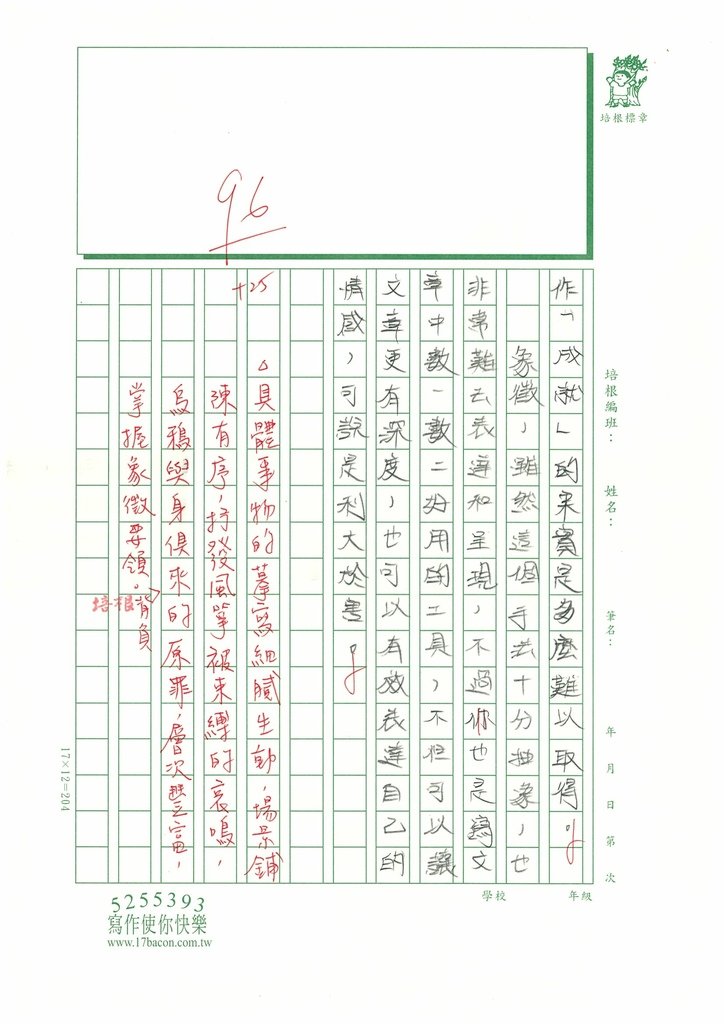 培根標章
培根編班：
姓名：
筆名：
年 月 日 第 次
學校
年級
96
+25
作「成就」的果實是多麼難以取得。
象徵，雖然這個手法十分抽象，也
非常難去表達和呈現，不過你也是寫文
章中數一數二好用的工具，不但可以讓
文章更有深度，也可以有效表達自己的
情感，可說是利大於害。
△具體事物的摹寫細膩生動，場景鋪
陳有序，抒發風箏被束縛的哀鳴，
烏鴉與身俱來的原罪，層次豐富，
掌握象徵要領。
背負
培根
17×12=204
5255393
寫作使你快樂
www.17bacon.com.tw